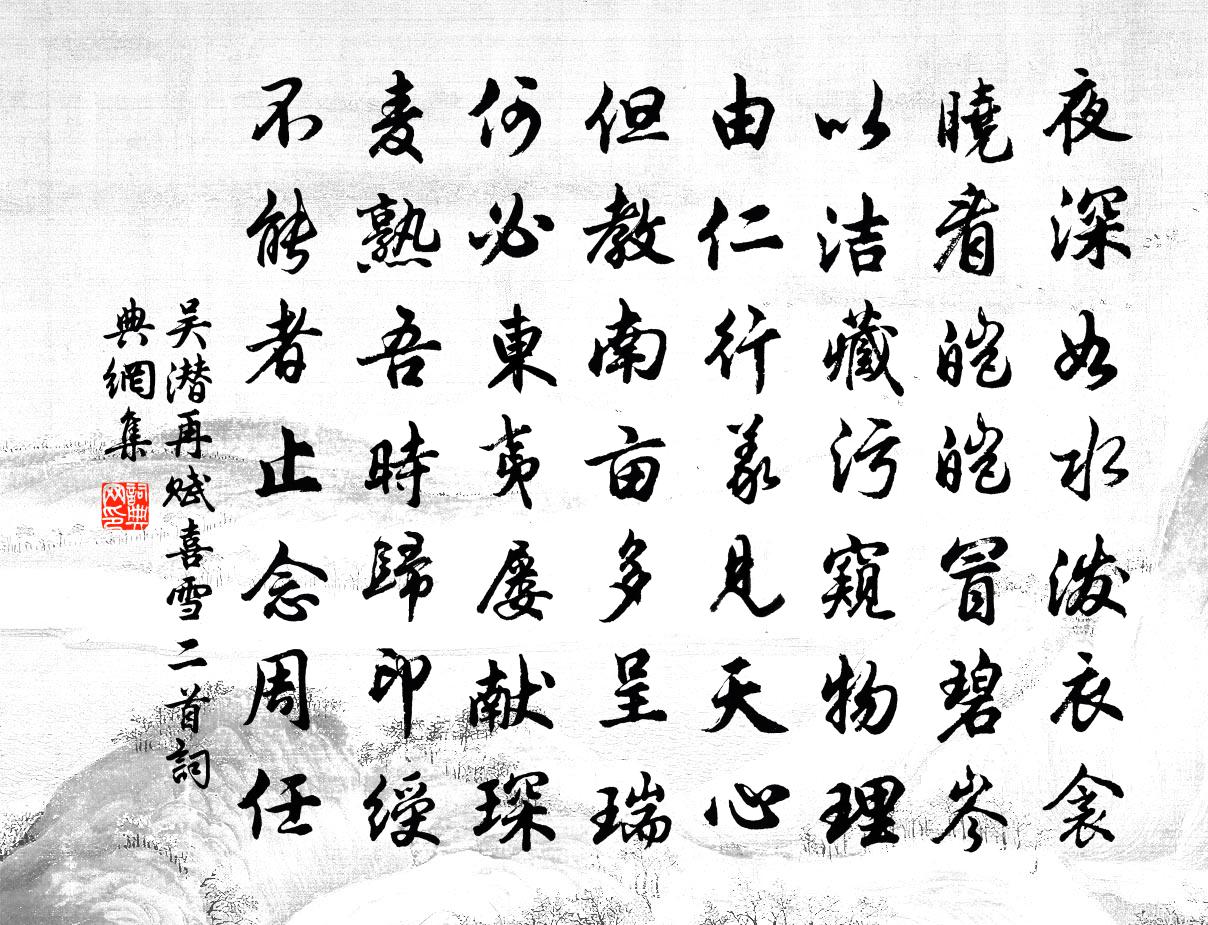 夜深如水泼衣衾
曉看皑皑冒碧岑
以洁藏污窺物理
由仁行義見天心
但教南亩多呈瑞
何必東夷屡献琛
麦熟吾時歸印綬
不能者止念周任
吴潜再赋喜雪二首詞
典網集
詞典
网印